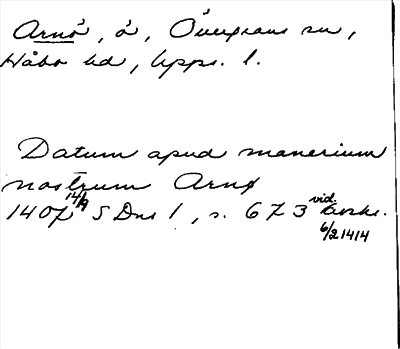 Arnö, ö, Övergrans sn,
Håbo hd, Upps. l.
Datum apud manerium
nostrum Arnø
1407 14/9 S Dns 1, s. 673 vid. avskr.
6/2 1414